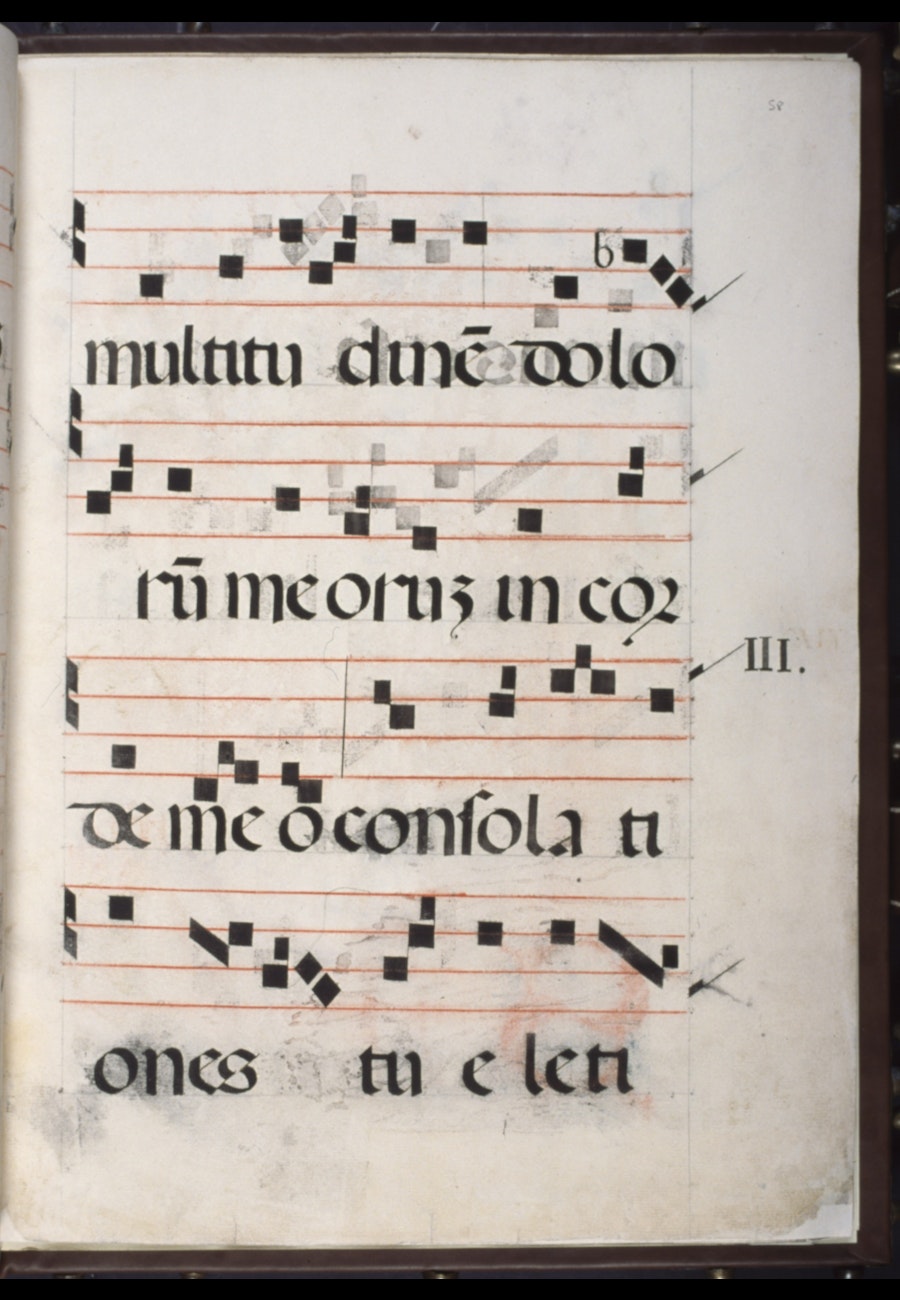 58
b
multitu dinē dolo
rū meoruʒ in cor
III.
de meo consola ti
ones tu e leti